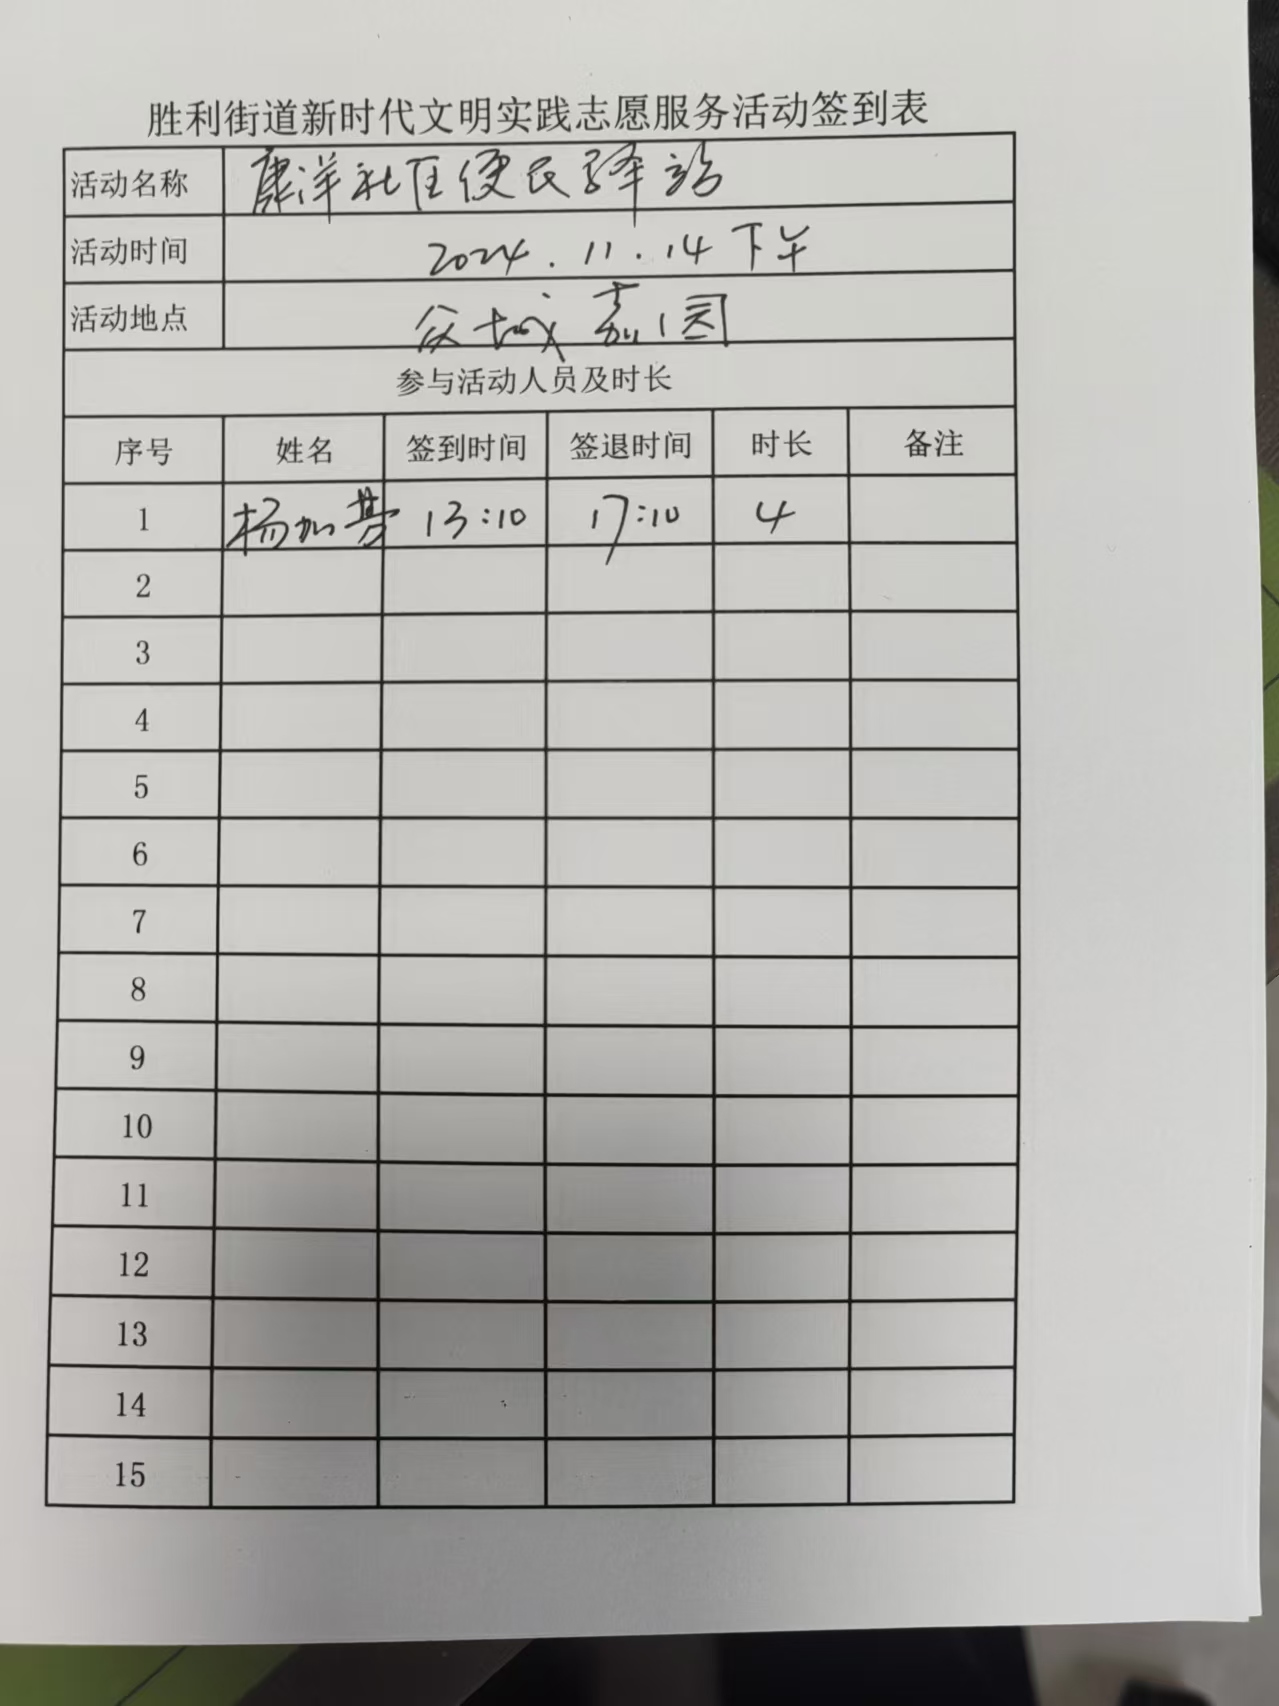 胜利街道新时代文明实践志愿服务活动签到表
活动名称 康洋社区便民驿站
活动时间 2024.11.14下午
活动地点 谷城嘉园
参与活动人员及时长
序号 姓名 签到时间 签退时间 时长 备注
1 杨加 13:10 17:10 4
2
3
4
5
6
7
8
9
10
11
12
13
14
15